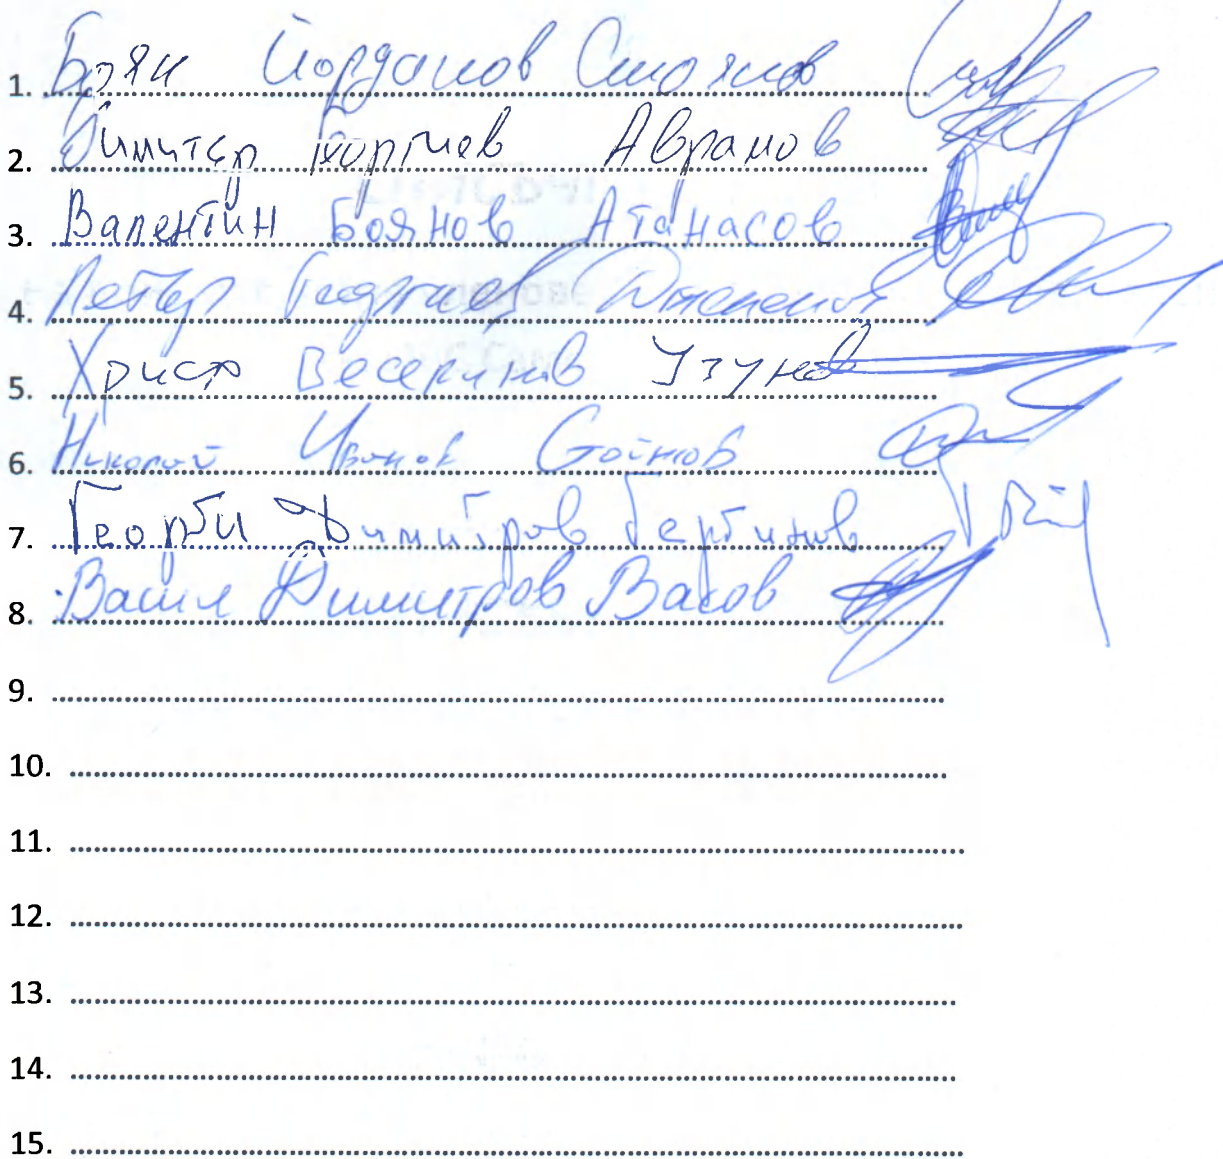 1. Боян Йорданов Стоянов
2. Димитър Георгиев Аврамов
3. Валентин Боянов Атанасов
4. Петър Георгиев
5. Христо Веселинов Узунов
6. Николай Иванов Стойнов
7. Георги Димитров Гергинов
8. Васил Димитров Васов
9.
10.
11.
12.
13.
14.
15.